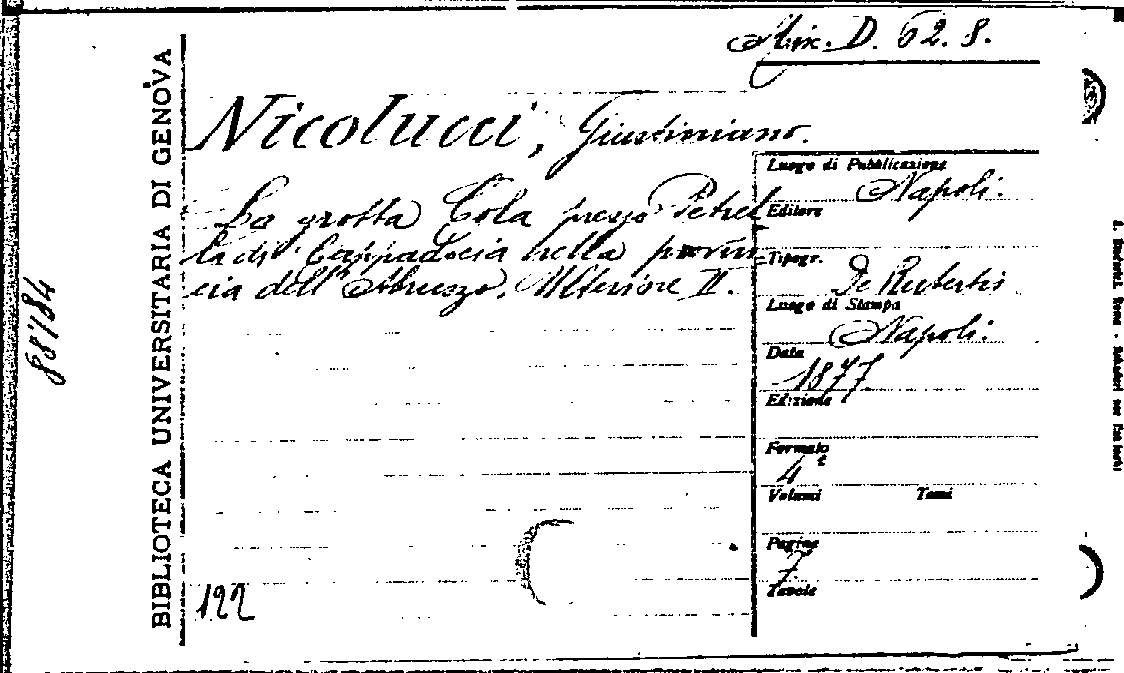 Misc. D. 62. 8.
BIBLIOTECA UNIVERSITARIA DI GENOVA
88184
Nicolucci, Giustiniano.
La grotta Cola presso Petrel
la di Cappadocia nella provin
cia dell' Abruzzo. Ulteriore II.
Luogo di Pubblicazione
Napoli.
Editore
Tipogr.
De Rubertis
Luogo di Stampa
Napoli.
Data
1877
Edizione
Formato
4°
Volumi Tomi
Pagine
7
Tavole
122